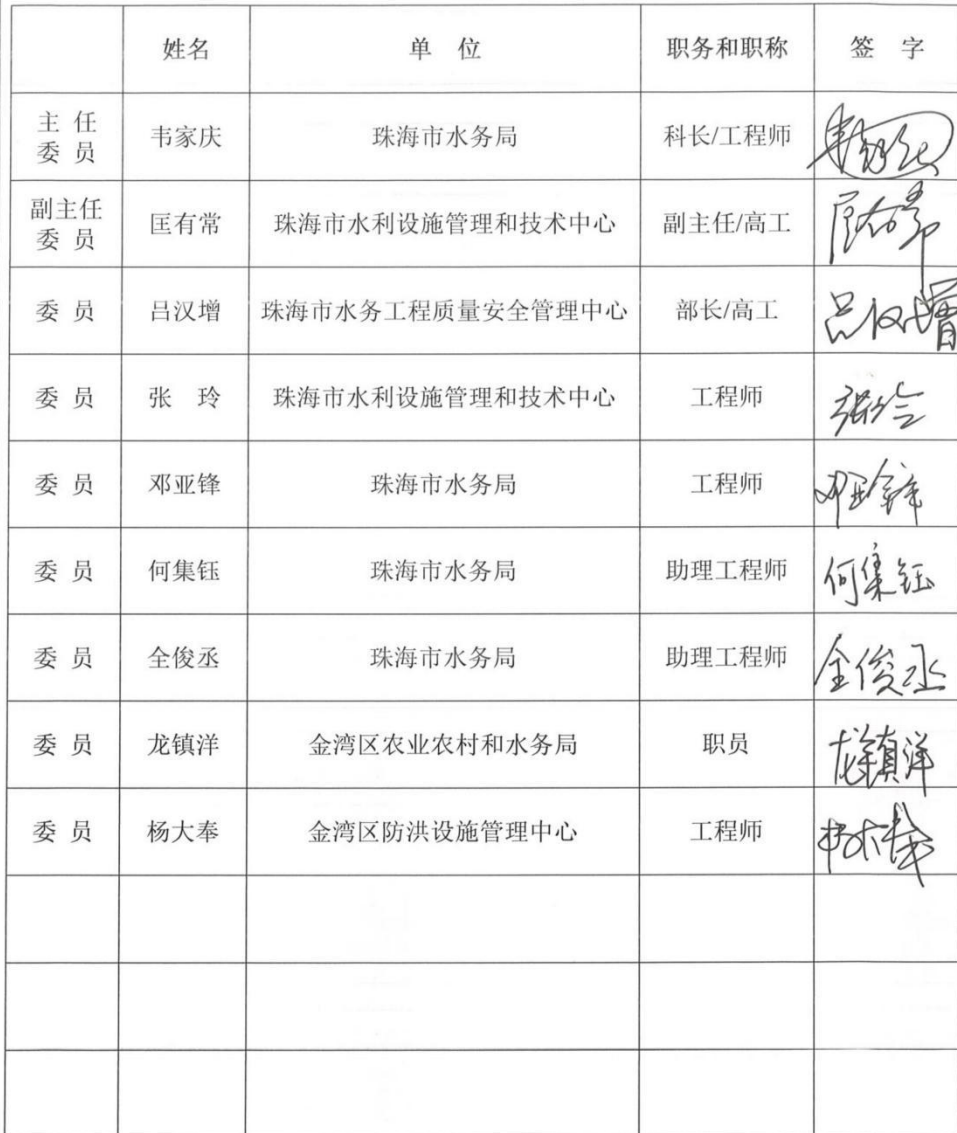 姓名 单 位 职务和职称 签 字
主 任
委 员 韦家庆 珠海市水务局 科长/工程师
副主任
委 员 匡有常 珠海市水利设施管理和技术中心 副主任/高工
委 员 吕汉增 珠海市水务工程质量安全管理中心 部长/高工 吕汉增
委 员 张 玲 珠海市水利设施管理和技术中心 工程师 张玲
委 员 邓亚锋 珠海市水务局 工程师 邓亚锋
委 员 何集钰 珠海市水务局 助理工程师 何集钰
委 员 全俊丞 珠海市水务局 助理工程师 全俊丞
委 员 龙镇洋 金湾区农业农村和水务局 职员 龙镇洋
委 员 杨大奉 金湾区防洪设施管理中心 工程师 杨大奉